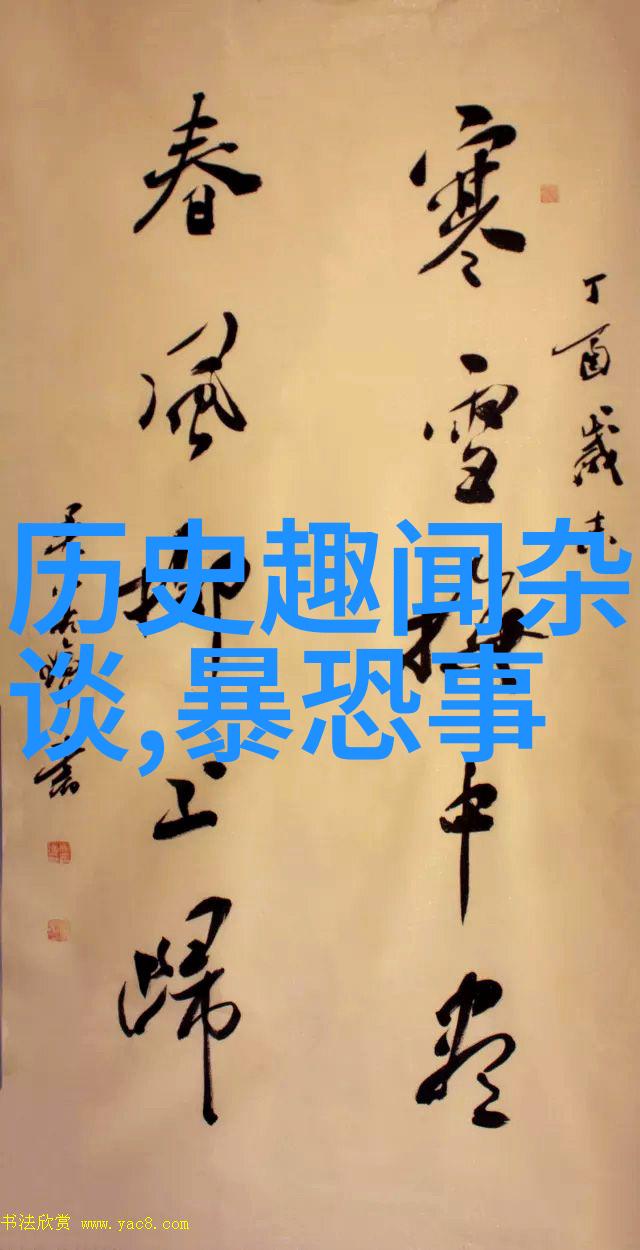 丁酉歲末
寒雪梅中盡
春風柳上歸
历史趣闻杂
谈,暴恐事
书法欣赏 www.yac8.com